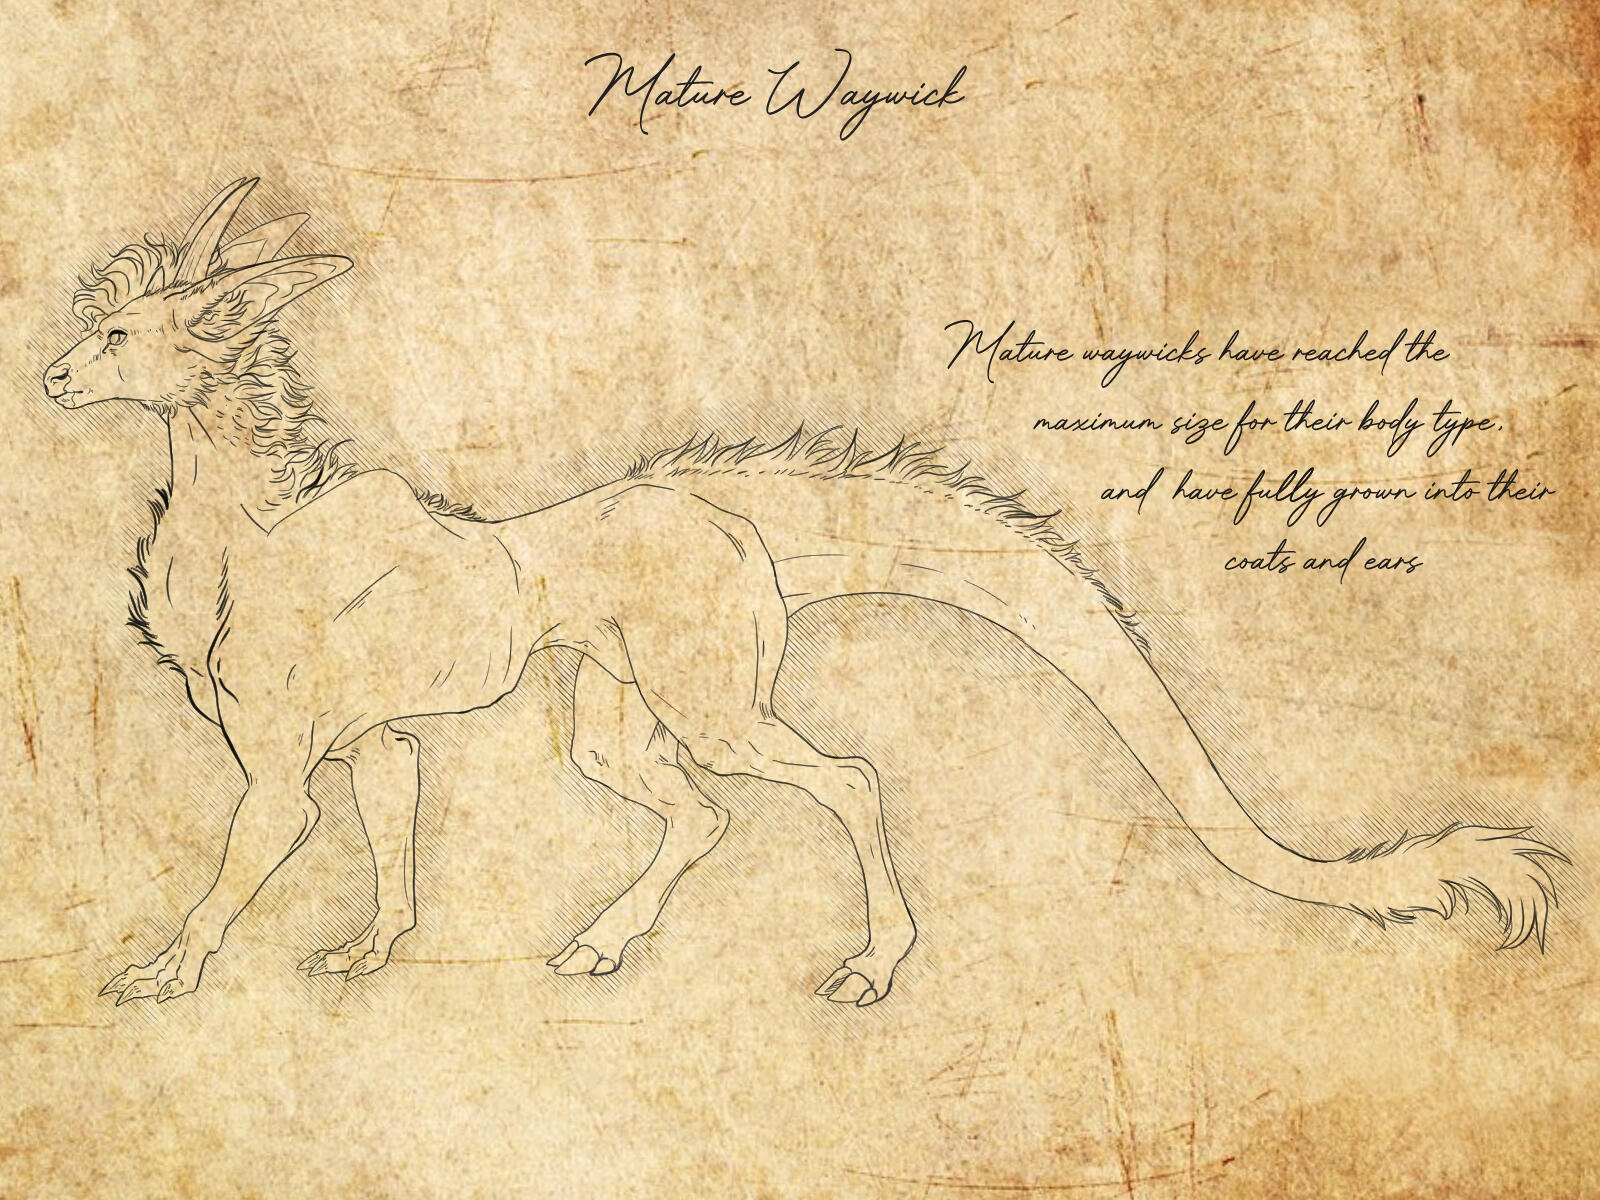 Mature Waywick
Mature waywicks have reached the
maximum size for their body type,
and have fully grown into their
coats and ears